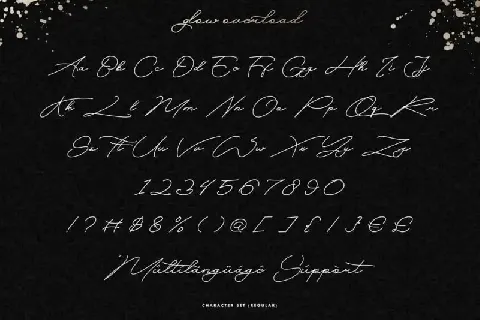 glow overload
Aa Bb Cc Dd Ee Ff Gg Hh Ii Jj
Kk Ll Mm Nn Oo Pp Qq Rr
Ss Tt Uu Vv Ww Xx Yy Zz
1234567890
! ? # $ & % ( ) @ [ ] { / } € £
Mültilängüágé Süppört
CHARACTER SET (REGULAR)